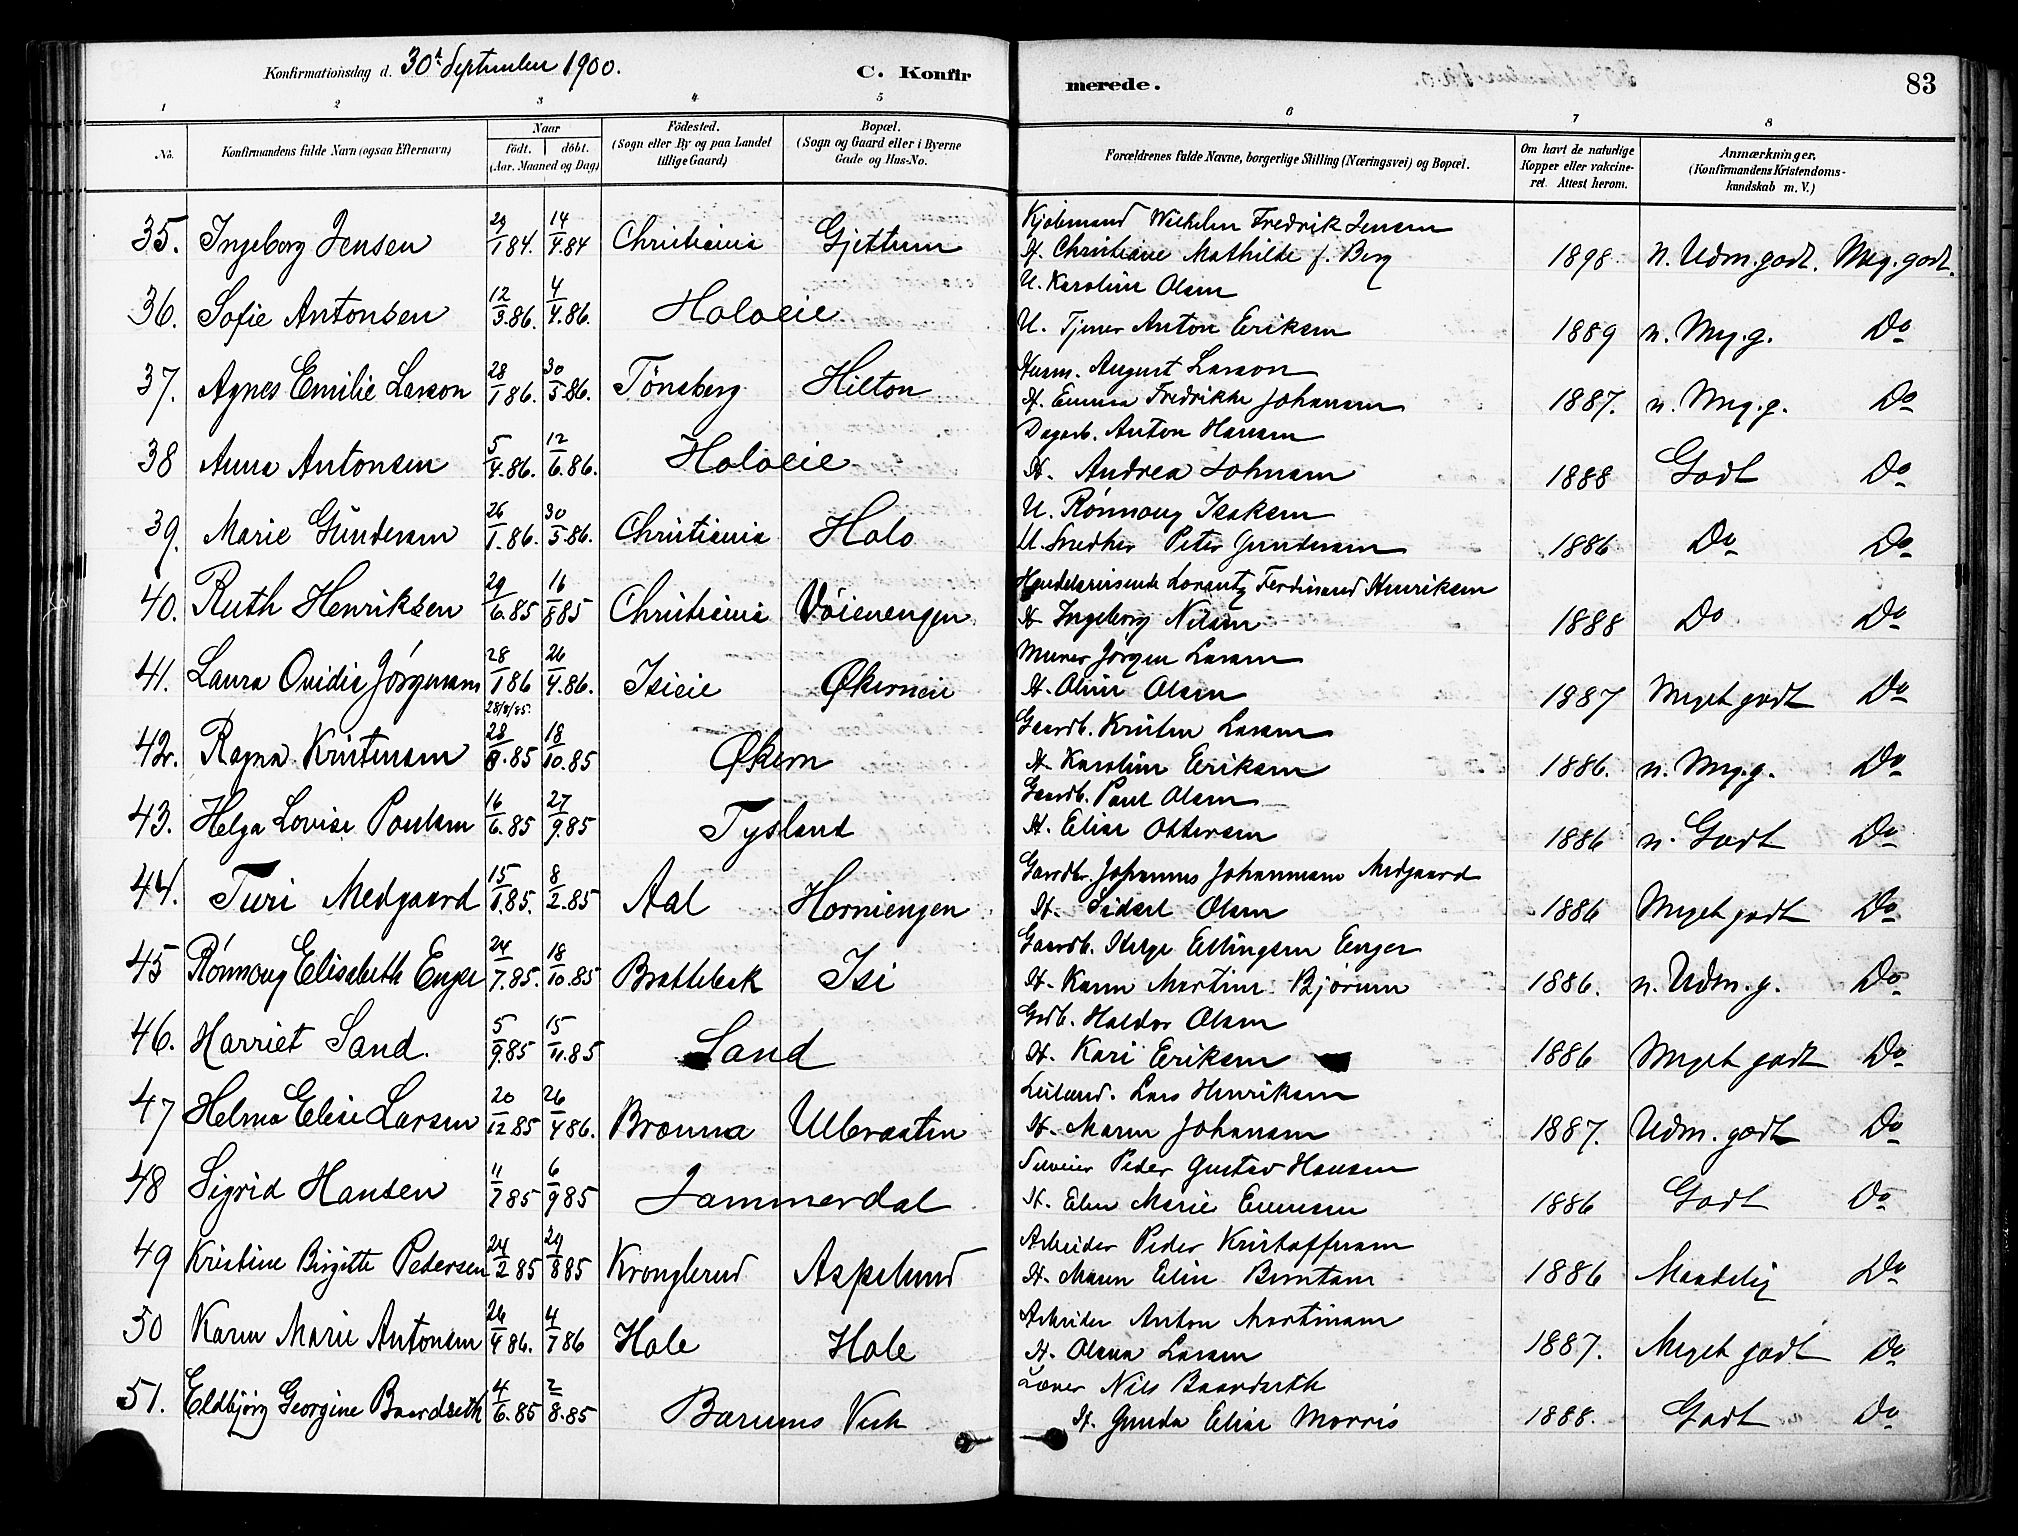 Konfirmationsdag d. 30te September 1900. C. Konfirmerede. 83
1 2 3 4 5 6 7 8
No. Konfirmandens fulde Navn (ogsaa Efternavn) Naar födt. döbt. (Aar. Maaned og Dag) Födested. (Sogn eller By og paa Landet tillige Gaard) Bopæl. (Sogn og Gaard eller i Byerne Gade og Hus-No. Forældrenes fulde Navne, borgerlige Stilling (Næringsvei) og Bopæl. Om havt de naturlige Kopper eller vakcineret. Attest herom. Anmærkninger. (Konfirmandens Kristendomskundskab m. V.)
Kjøbmand Wilhelm Fredrik Jensen
35. Ingeborg Jensen 29/1 84. 14/4.84 Christiania Gjettum H. Christiane Mathilde f. Berg 1898 n. Udm. godt. Meg. godt.
U. Karoline Olsen
36. Sofie Antonsen 12/3.86. 4/4.86. Holoeie U. Tjener Anton Eriksen 1889 n. Meg. g. Do
Husm. August Larson
37. Agnes Emilie Larson 28/1 86. 30/5.86. Tönsberg Hilton H. Emma Fredrikke Johansen 1887. n. Meg. g. Do
Dagarb. Anton Hansen
38 Anna Antonsen 5/4.86. 12/6.86. Holoeie H. Andrea Johnsen 1888 Godt Do
U. Rønnoug Isaksen
39. Marie Gundersen 26/1.86. 30/5.86. Christiania Holo U. Snedker Peter Gundersen 1886 Do Do
Handelsreisende Lorentz Ferdinand Henriksen
40. Ruth Henriksen 29/6.85 16/8 85 Christiania Vöienengen H. Ingeborg Nilsen 1888 Do Do
Murer Jörgen Larsen
41. Laura Ovidia Jörgensen 28/1 86 26/4.86. Isieie Økerneie H. Oline Olsen 1887 Meget godt Do
28/8/85.
Gaardb. Kristen Larsen
42. Ragna Kristensen 28/8.85 18/10.85 Økern H. Karoline Eriksen 1886. n. Meg. g. Do
Gaardb. Paul Olsen
43. Helga Lovise Poulsen 16/6.85 27/9.85 Tysland H. Elise Ottersen 1886 n. Godt Do
Gaardbr. Johannes Johannesen Medgaard
44. Turi Medgaard 15/1.85. 8/2.85 Aal Horniengen H. Sidsel Olsen 1886 Meget godt Do
Gaardb. Helge Ellingsen Enger
45 Rønnoug Elisabeth Enger 24/7.85. 18/10.85 Brattebek Isi H. Karen Martine Bjørum 1886. n. Udm. g. Do
Grdb. Haldor Olsen
46. Harriet Sand. 5/9.85 15/11.85 Sand H. Kari Eriksen 1886 Meget godt Do
Leilænd. Lars Henriksen
47 Helma Elise Larsen 20/12 85 26/4 86. Brænna Ulbraaten H. Maren Johansen 1887. Udm. godt Do
Selveier Peder Gustav Hansen
48 Sigrid Hansen 11/7 85 6/9 85 Jammerdal H. Elen Marie Evensen 1886 Godt Do
Arbeider Peder Kristoffersen
49 Kristine Birgitte Pedersen 24/2 85 29/8 85 Kronglerud Aspelund H. Maren Eline Berntsen 1886 Maadelig Do
Arbeider Anton Martinsen
50 Karen Marie Antonsen 26/4 86. 4/7 86 Hole Hole H. Olava Larsen 1887. Meget godt Do
Lærer Nils Baardseth
51. Eldbjörg Georgine Baardseth 4/6.85 2/8.85 Bærums Verk H. Gunda Elise Morris 1888. Godt Do